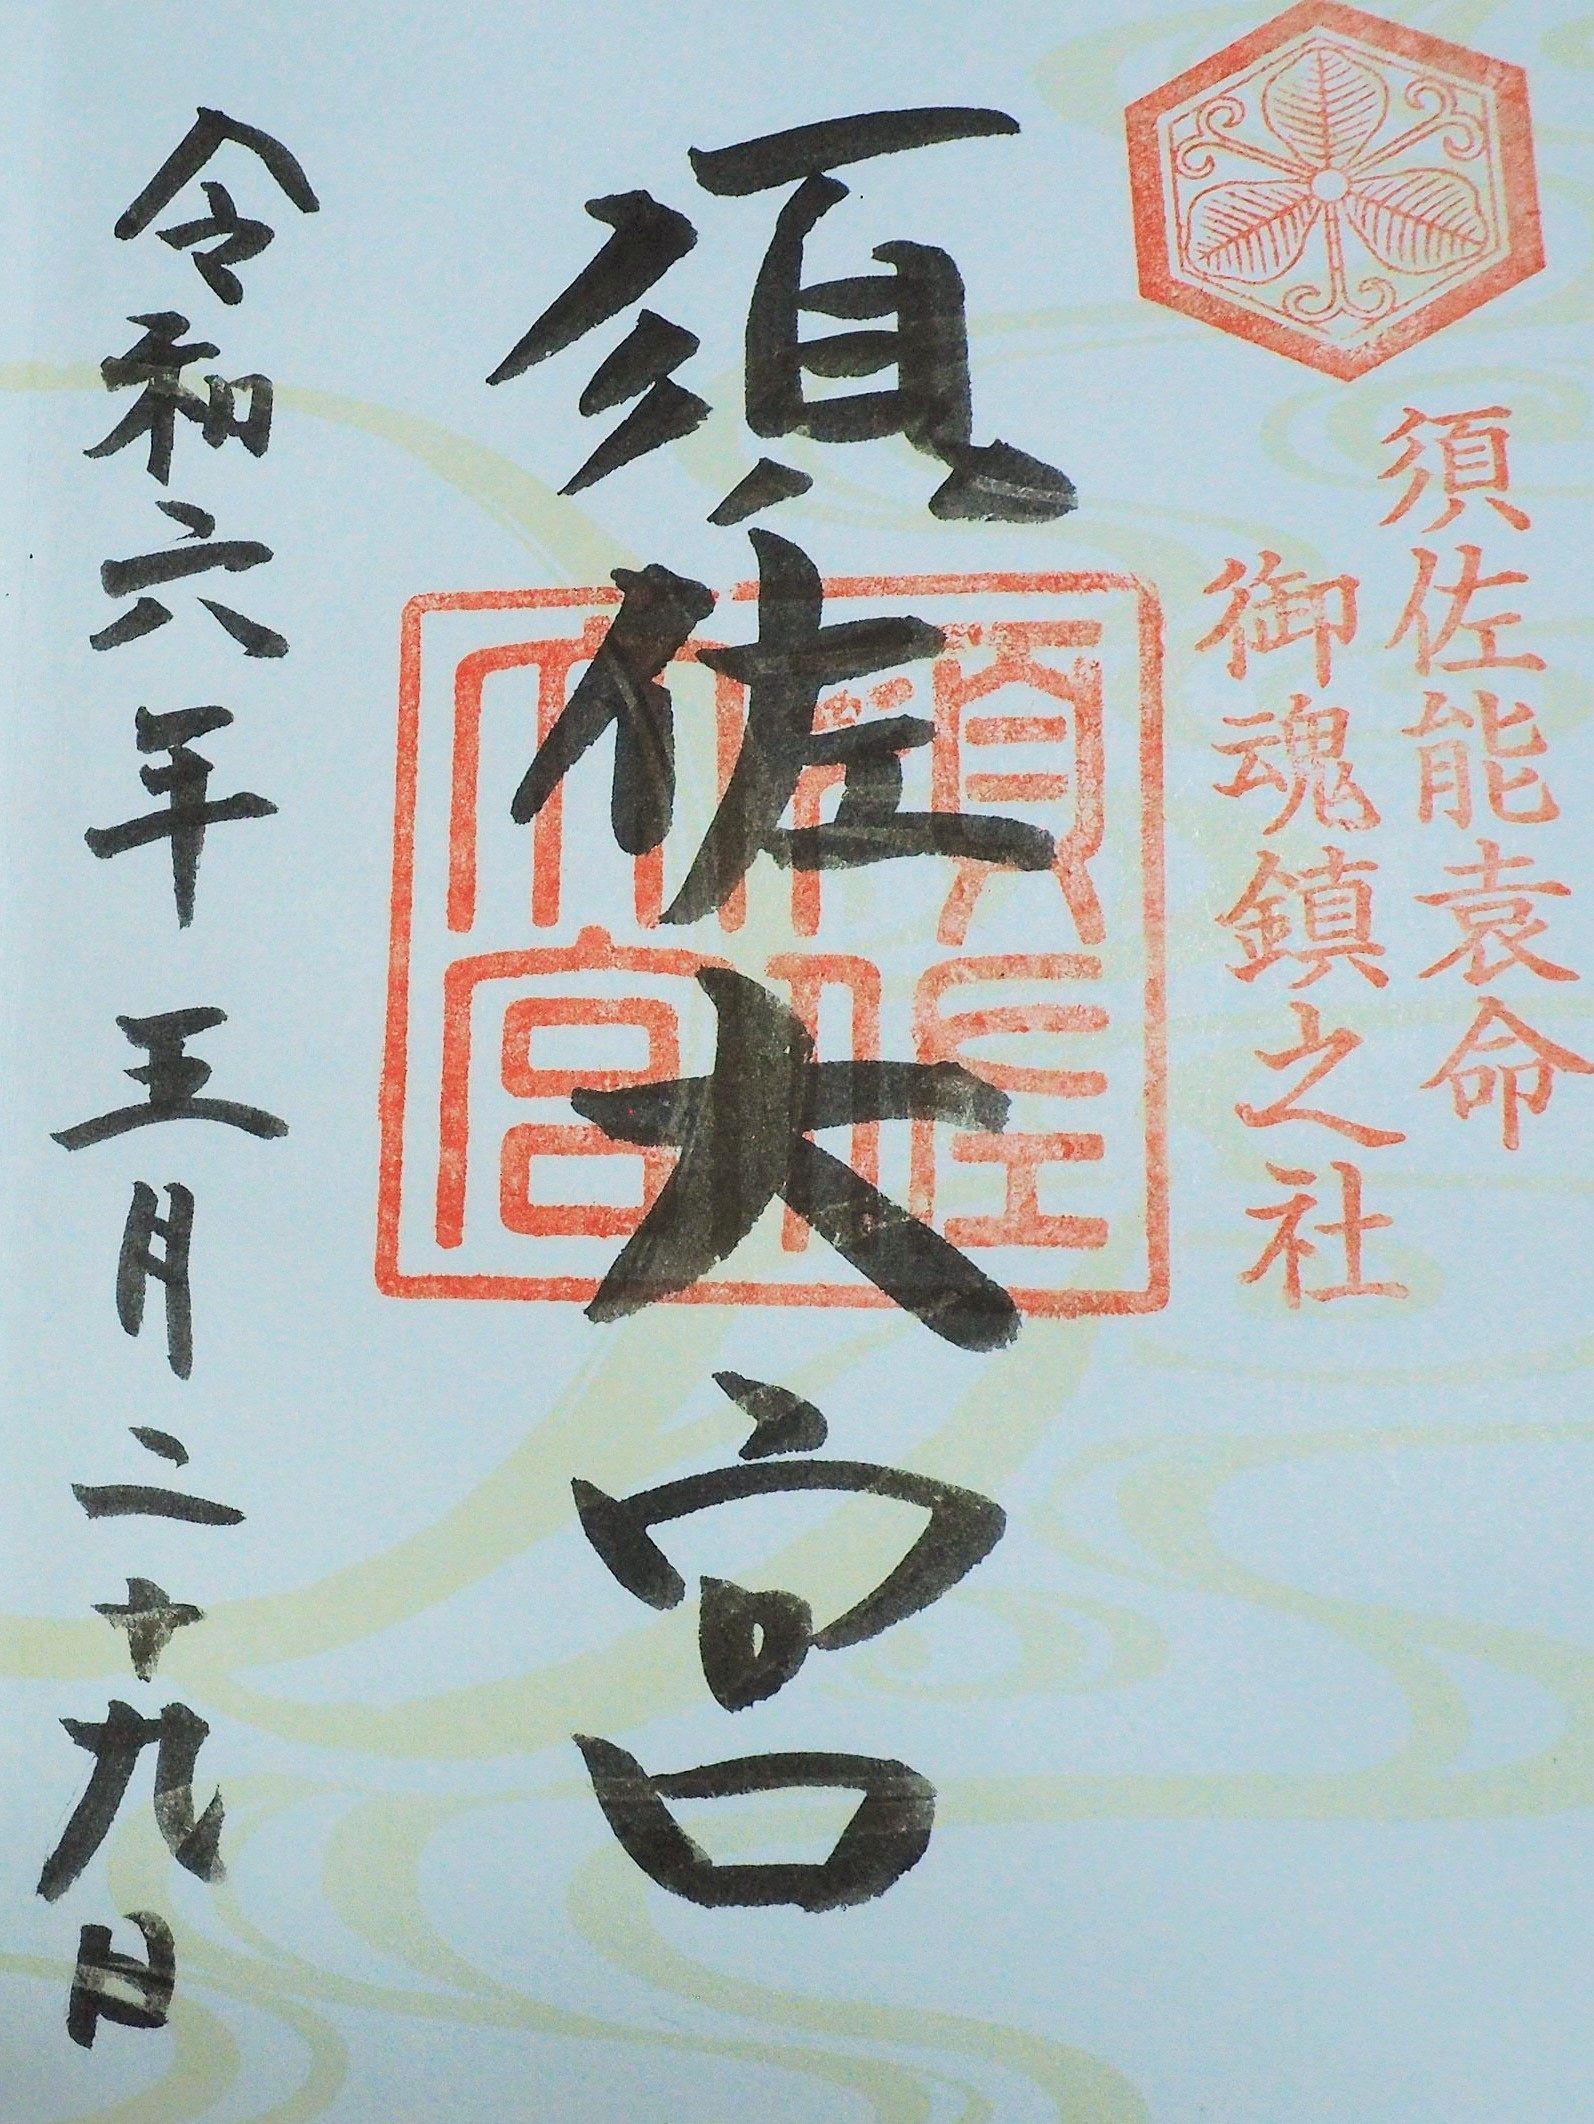 須佐能袁命
御魂鎮之社
須佐大宮
須佐大宮
令和六年五月二十九日